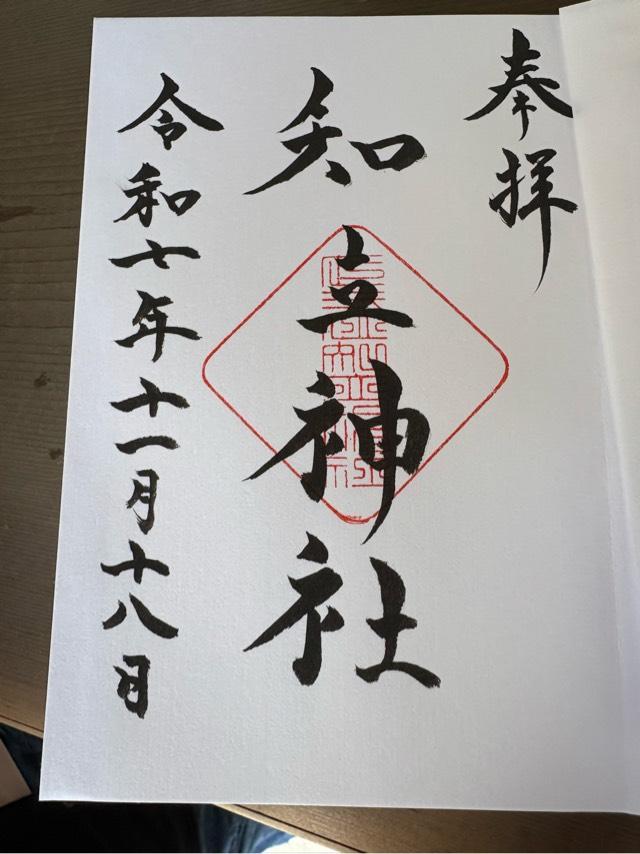 奉拝
知立神社
令和七年十一月十八日